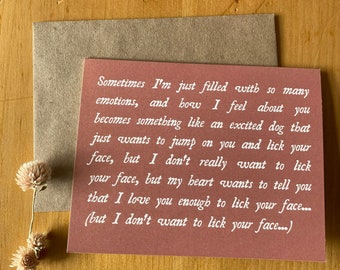 Sometimes I'm just filled with so many
emotions, and how I feel about you
becomes something like an excited dog that
just wants to jump on you and lick your
face, but I don't really want to lick
your face, but my heart wants to tell you
that I love you enough to lick your face...
(but I don't want to lick your face...)